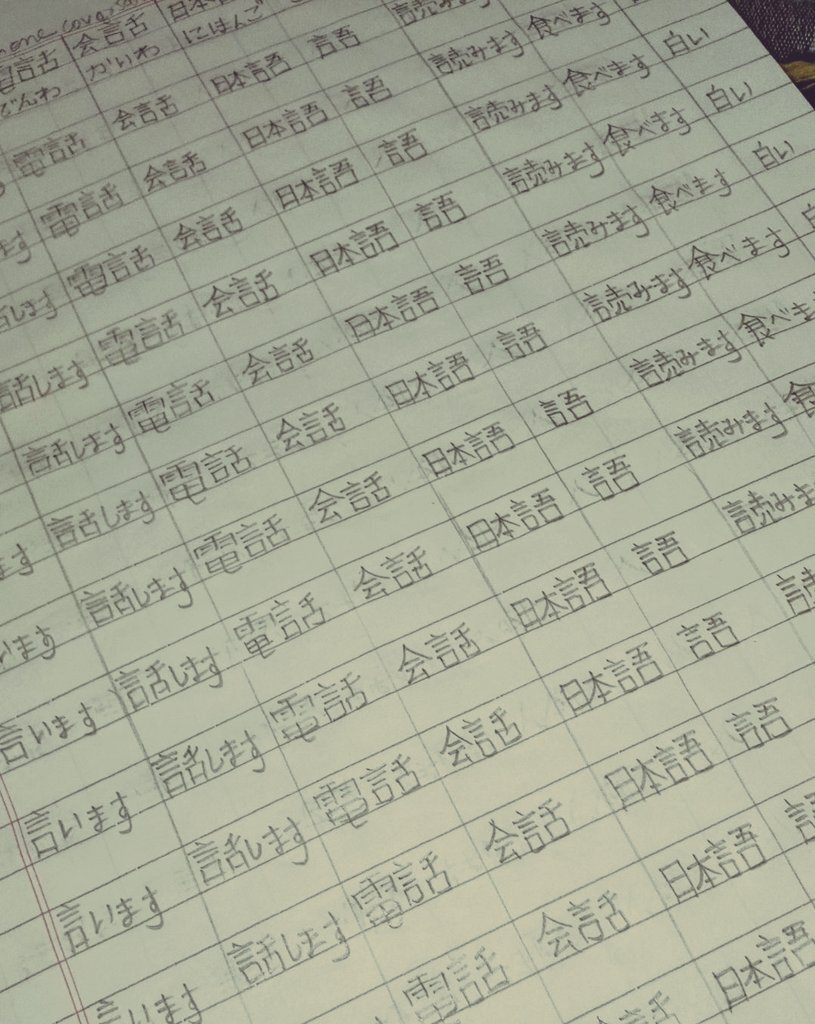 one cova
電話 会話 日本
でんわ かいわ にほんご
電話 会話 日本語 語 読みます
ます 電話 会話 日本語 語 読みます 食べます
話します 電話 会話 日本語 語 読みます 食べます 白い
話します 電話 会話 日本語 語 読みます 食べます 白い
話します 電話 会話 日本語 語 読みます 食べます 白い
ます 話します 電話 会話 日本語 語 読みます 食べます 白
います 話します 電話 会話 日本語 語 読みます 食べま
言います 話します 電話 会話 日本語 語 読みます 食
言います 話します 電話 会話 日本語 語 読みま
言います 話します 電話 会話 日本語 語 読
言います 話します 電話 会話 日本語 語
電話 会話 日本語 語
会話 日本語